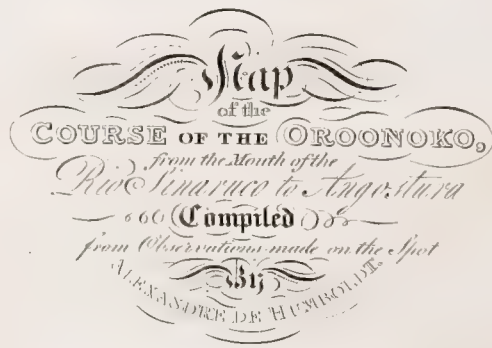 Map
of the
COURSE OF THE OROONOKO,
from the Mouth of the
Rio Sinaruco to Angostura
Compiled
from Observations made on the Spot
By
ALEXANDRE DE HUMBOLDT.